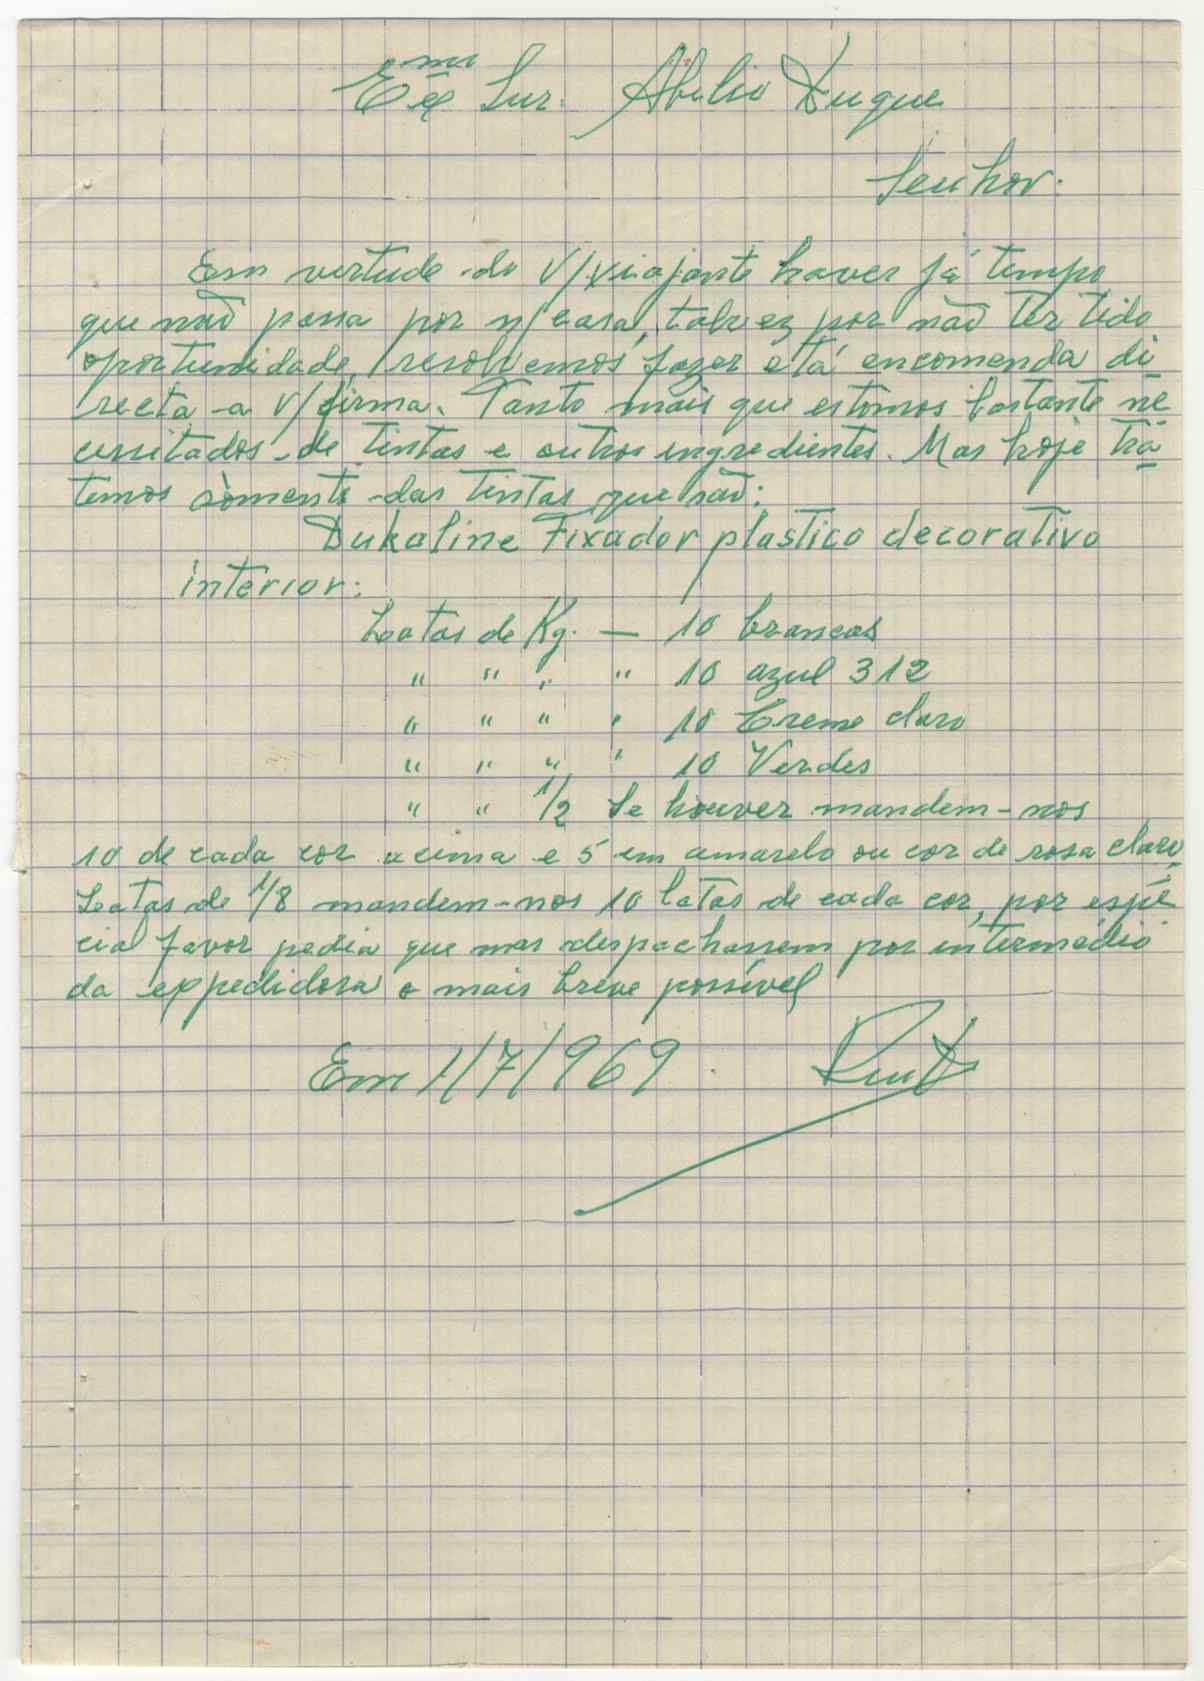 Exmo Snr. Abilio Duque
Senhor.
Em virtude do V/viajante haver já tempo
que não passa por n/casa, talvez por não ter tido
oportunidade, resolvemos fazer está encomenda di
recta a V/firma. Tanto mais que estomos bastante ne
cessitados de tintas e outros ingredientes. Mas hoje trá
temos sòmente das tintas que são:
Dukaline Fixador plastico decorativo
interior:
Latas de Kg. — 10 brancas
" " " " 10 azul 312
" " " " 10 Creme claro
" " " " 10 Verdes
" " 1/2 Se houver mandem-nos
10 de cada cor acima e 5 em amarelo ou cor de rosa claro,
Latas de 1/8 mandem-nos 10 latas de cada cor, por espe
cial favor pedia que mas despachassem por intermédio
da expedidora o mais breve possível
Em 1/7/969